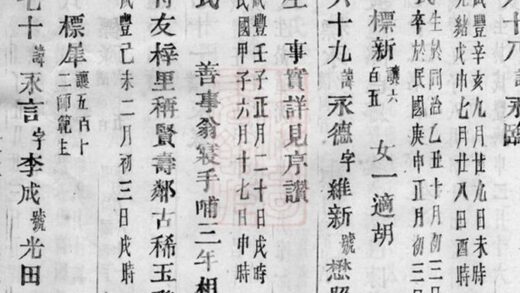 諱永臨
豐辛亥九月廿九日未時
光緒戊申七月廿八日酉時
生於同治乙丑十月初
卒於民國庚申正月初三
標新 讓六百五 女一適胡
六十九 諱永德字維新號懋
生 事實詳見序讚
豐壬子正月二十日戌時
民國甲子六月十七日申時
民 善事翁寢手哺三年相
友梓里稱賢壽鄰古稀玉
咸豐己未二月初三日戌時
標犀 讓五百十二師範生
七十 諱永言字李成號光田